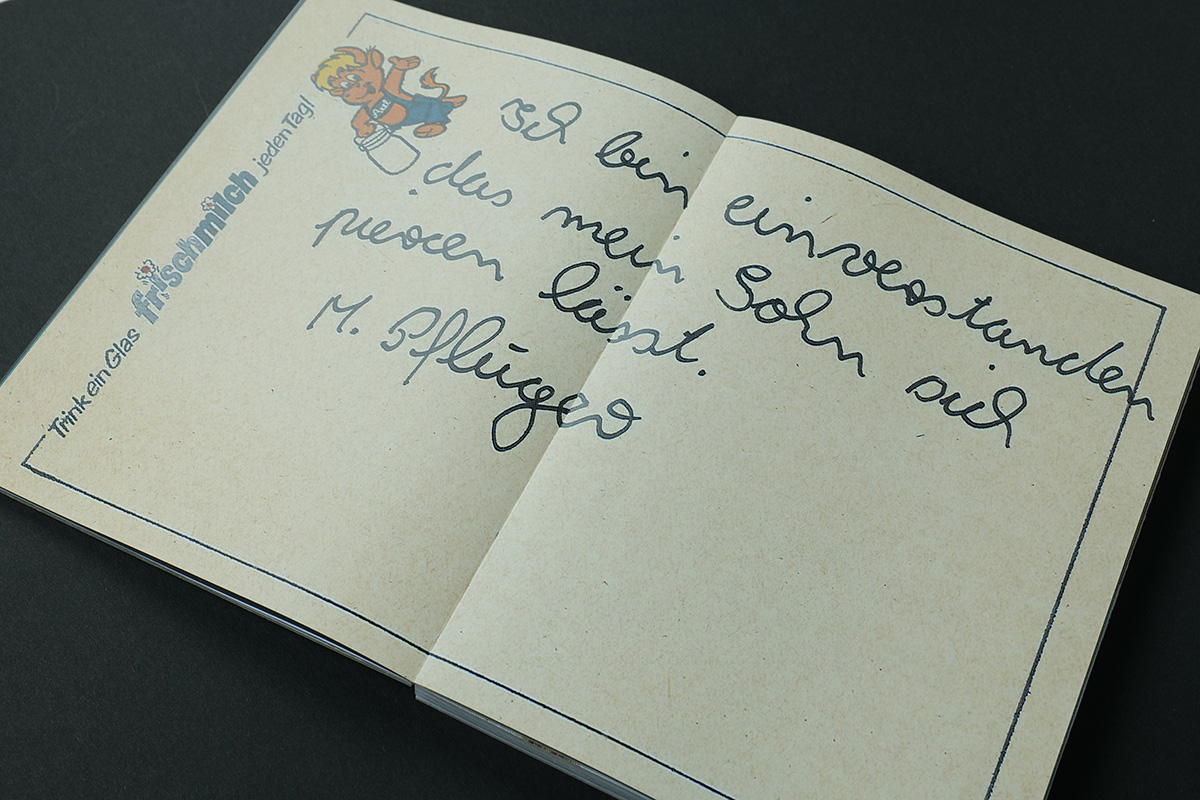 Trink ein Glas frischmilch jeden Tag!
Ich bin einverstanden
das mein Sohn sich
piercen lässt.
M. Pflüger